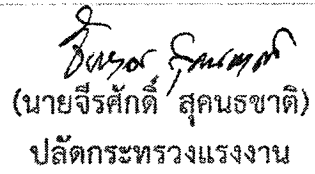 (นายจีรศักดิ์ สุคนธชาติ)
ปลัดกระทรวงแรงงาน